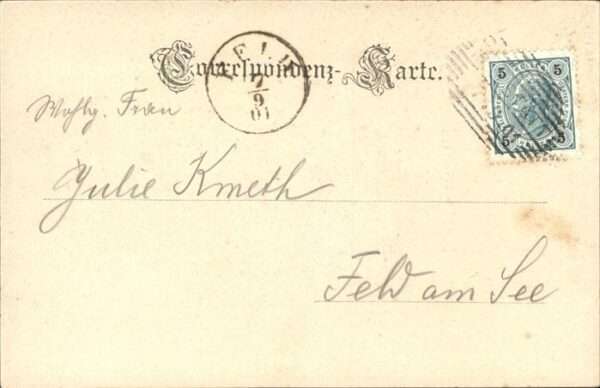 Correspondenz-Karte.
7
9
01
5 5
Wohlg. Frau
5 5
Julie Kmeth
Feld am See